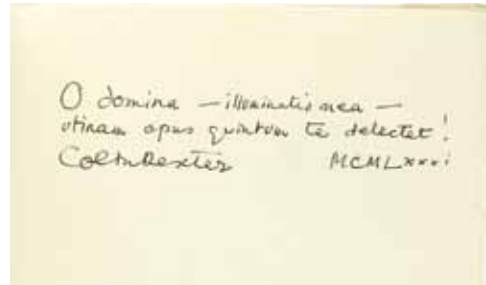 O domina — illuminatio mea —
utinam opus quintum te delectet!
Colin Dexter MCMLxxxi